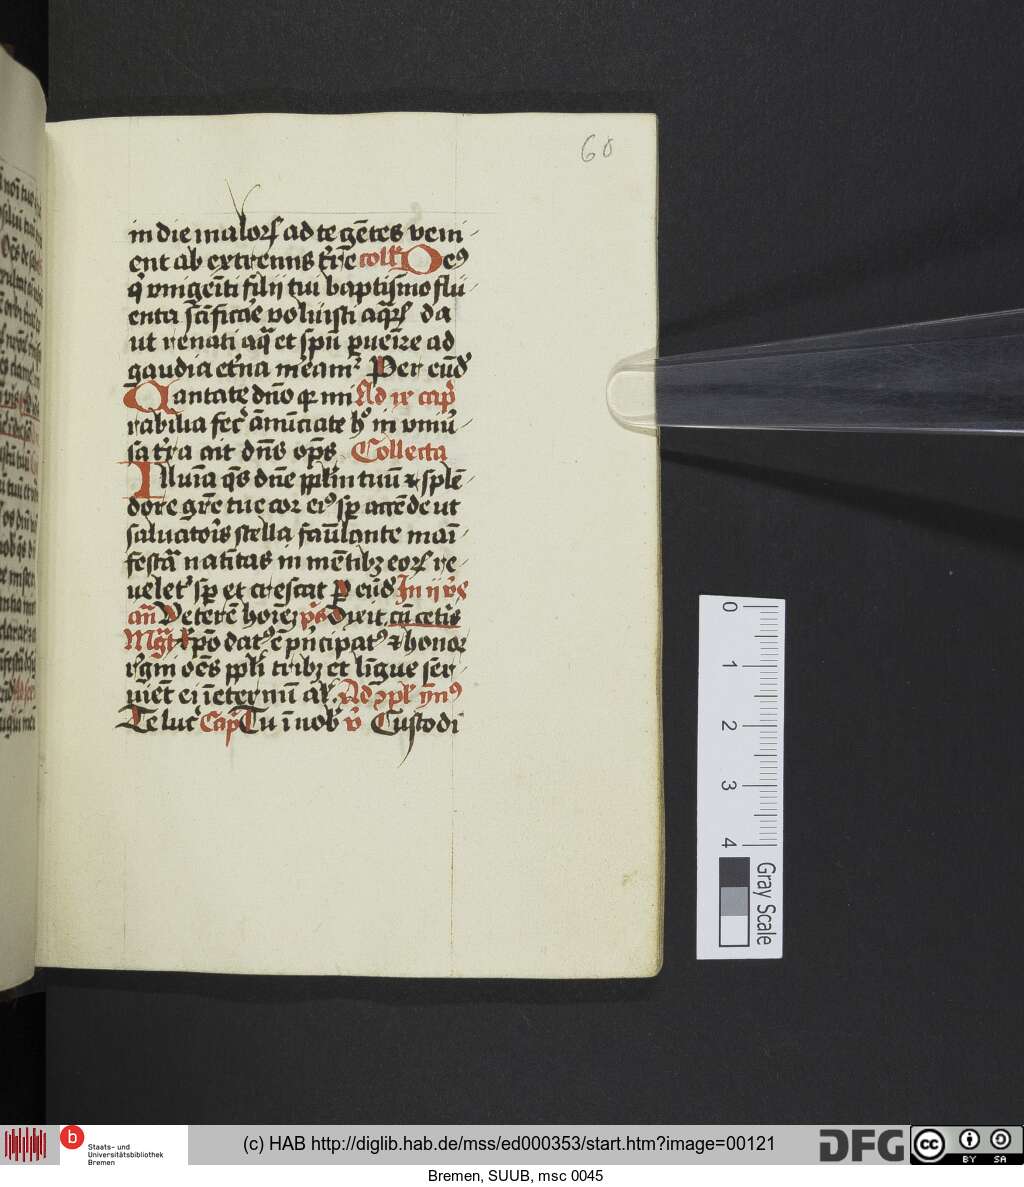 60
in die malorꝝ ad te gētes veni-
ent ab extremis tr̄re coll̄ Deꝰ
q̄ vnigeīti filij tui baptismo flu-
enta sc̄ificāe voluisti aq̄rꝝ da
ut renati aq̄ et spū pueīre ad
gaudia et̄na meāmꝰ Per eūd̄
Cantate dn̄o qꝛ mi Ad ix cap̄
rabilia fec̄ ānūciate hͦ in vniu̓-
sa tr̄ra ait dn̄s op̄s Collecta
Illuīa q̄s dn̄e pplm̄ tuū ⁊ splē-
dore gr̄e tue cor eiꝰ sp̄ accēde ut
saluatoris stella faūlante mai-
festā natītas in mētibꝫ eorꝝ re-
velet̓ sp̄ et crescat ꝑ eūd̄ In ij v̄s
an̄ Veterē hoīeꝫ p̄s Dixit cū cetīs
Mg̅t Xpō datꝰ ē pn̄cipatꝰ ⁊ honor
r̓gni oēs ppl̄i tribꝫ et līgue ser-
uiēt ei īeternū al̄ Ad ꝯpl̄ ymꝰ
Te luc̄ Cap̄ Tu ī nob̄ v̄ Custodi
0
1
2
3
4
Gray Scale
b Staats- und
Universitätsbibliothek
Bremen
(c) HAB http://diglib.hab.de/mss/ed000353/start.htm?image=00121
DFG
cc BY SA
Bremen, SUUB, msc 0045